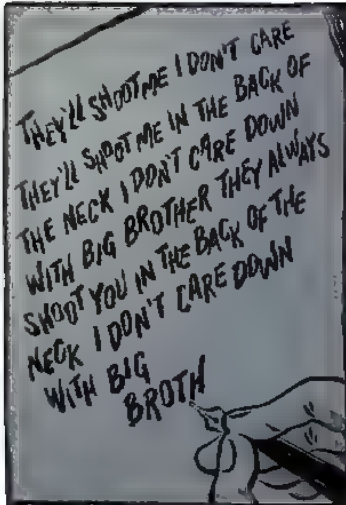 THEY'LL SHOOT ME I DON'T CARE
THEY'LL SHOOT ME IN THE BACK OF
THE NECK I DON'T CARE DOWN
WITH BIG BROTHER THEY ALWAYS
SHOOT YOU IN THE BACK OF THE
NECK I DON'T CARE DOWN
WITH BIG
BROTH